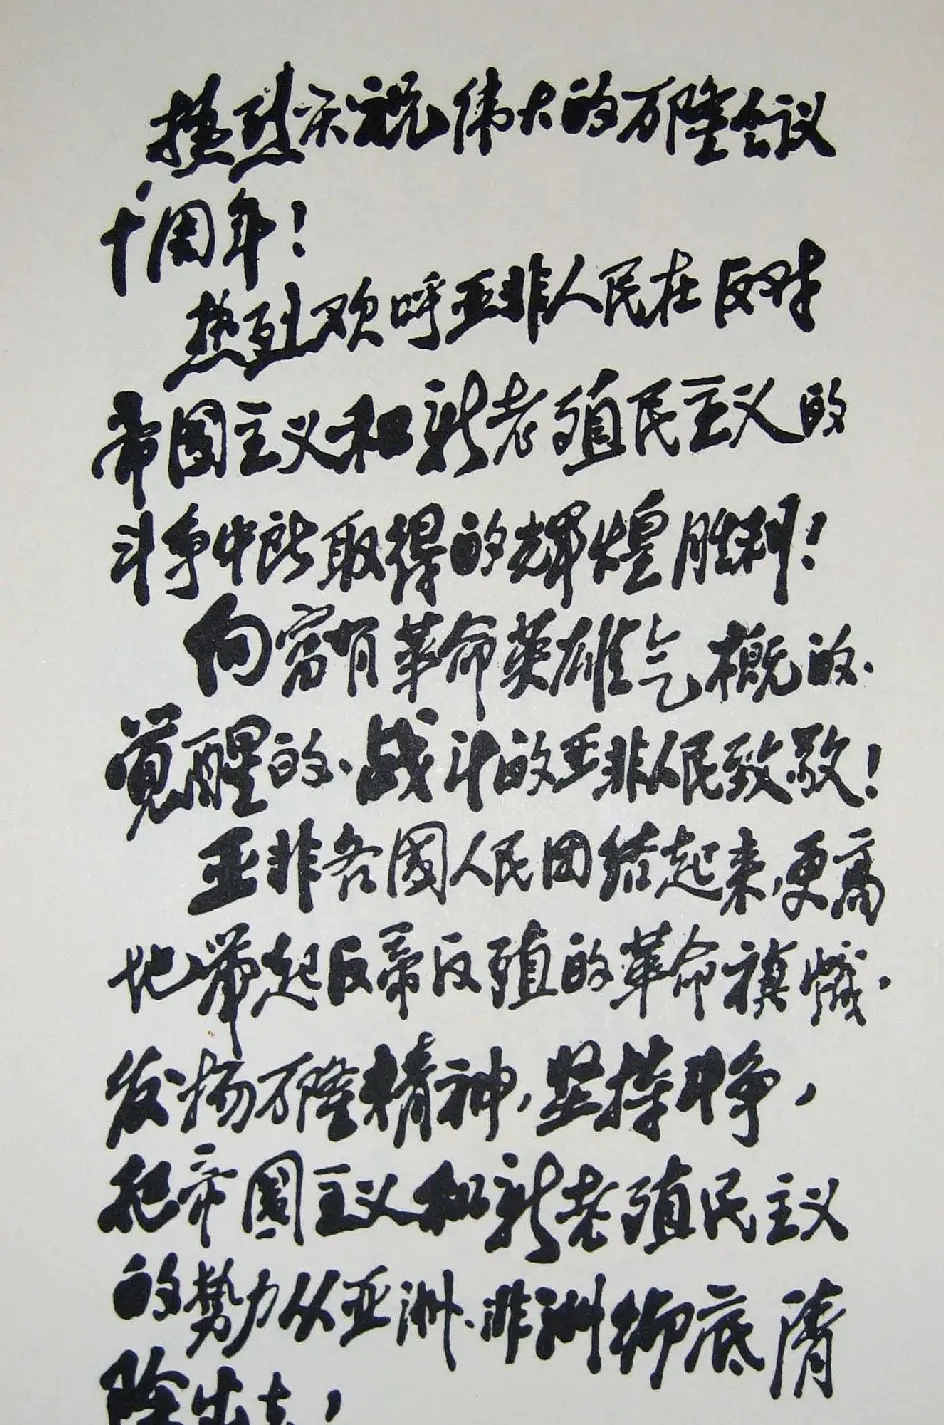 热烈庆祝伟大的万隆会议
十周年！
热烈欢呼亚非人民在反对
帝国主义和新老殖民主义的
斗争中所取得的辉煌胜利！
向富有革命英雄气概的、
觉醒的、战斗的亚非人民致敬！
亚非各国人民团结起来，更高
地举起反帝反殖的革命旗帜，
发扬万隆精神，坚持斗争，
把帝国主义和新老殖民主义
的势力从亚洲、非洲彻底清
除出去！